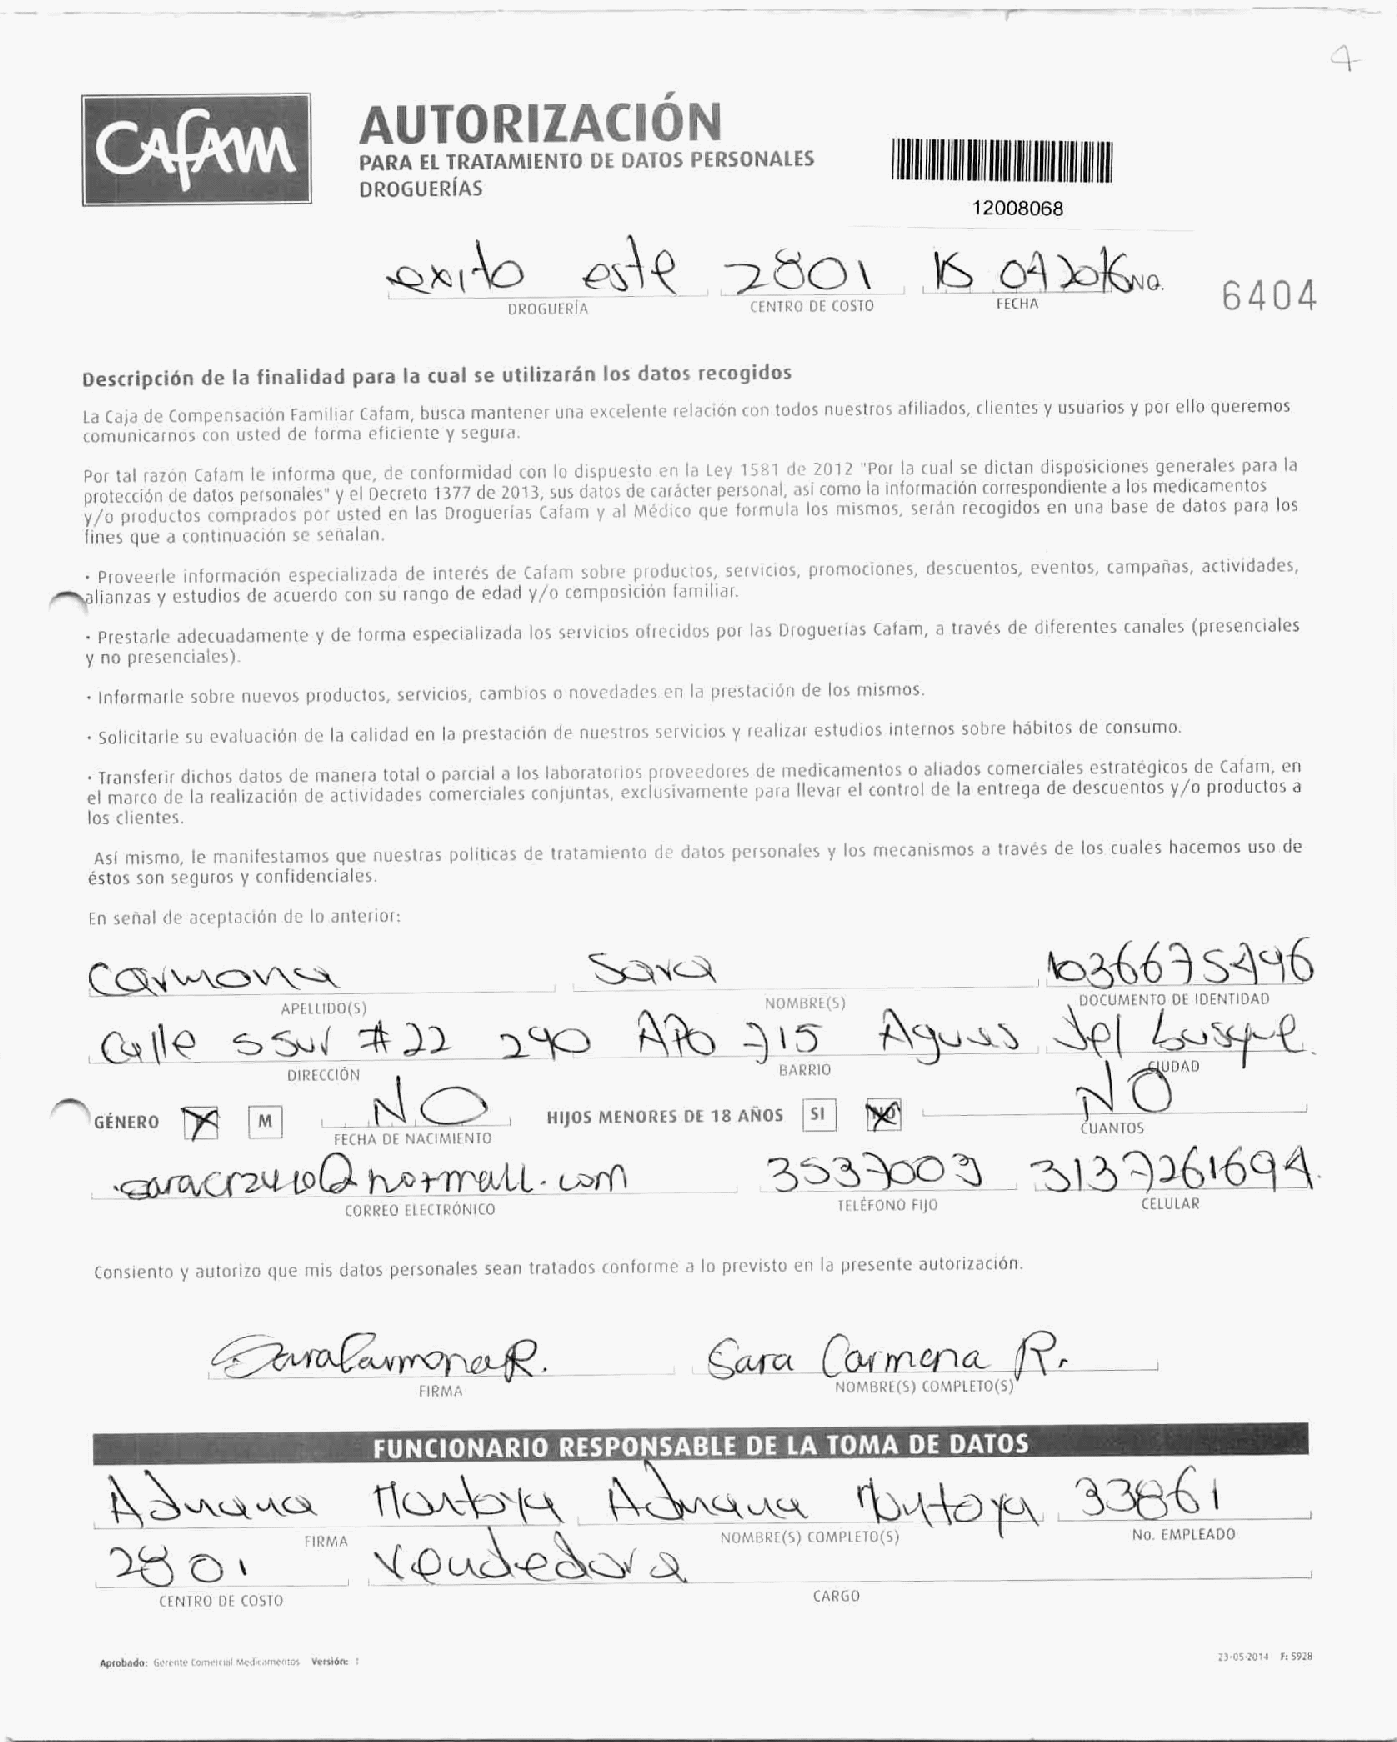 4
CAfAM
AUTORIZACIÓN
PARA EL TRATAMIENTO DE DATOS PERSONALES
DROGUERÍAS
12008068
exito este 2801 15 04 2016 NO. 6404
DROGUERÍA CENTRO DE COSTO FECHA
Descripción de la finalidad para la cual se utilizarán los datos recogidos
La Caja de Compensación Familiar Cafam, busca mantener una excelente relación con todos nuestros afiliados, clientes y usuarios y por ello queremos
comunicarnos con usted de forma eficiente y segura.
Por tal razón Cafam le informa que, de conformidad con lo dispuesto en la Ley 1581 de 2012 "Por la cual se dictan disposiciones generales para la
protección de datos personales" y el Decreto 1377 de 2013, sus datos de carácter personal, así como la información correspondiente a los medicamentos
y/o productos comprados por usted en las Droguerías Cafam y al Médico que formula los mismos, serán recogidos en una base de datos para los
fines que a continuación se señalan.
· Proveerle información especializada de interés de Cafam sobre productos, servicios, promociones, descuentos, eventos, campañas, actividades,
alianzas y estudios de acuerdo con su rango de edad y/o composición familiar.
· Prestarle adecuadamente y de forma especializada los servicios ofrecidos por las Droguerías Cafam, a través de diferentes canales (presenciales
y no presenciales).
· Informarle sobre nuevos productos, servicios, cambios o novedades en la prestación de los mismos.
· Solicitarle su evaluación de la calidad en la prestación de nuestros servicios y realizar estudios internos sobre hábitos de consumo.
· Transferir dichos datos de manera total o parcial a los laboratorios proveedores de medicamentos o aliados comerciales estratégicos de Cafam, en
el marco de la realización de actividades comerciales conjuntas, exclusivamente para llevar el control de la entrega de descuentos y/o productos a
los clientes.
Así mismo, le manifestamos que nuestras políticas de tratamiento de datos personales y los mecanismos a través de los cuales hacemos uso de
éstos son seguros y confidenciales.
En señal de aceptación de lo anterior:
Carmona Sara 1036675496
APELLIDO(S) NOMBRE(S) DOCUMENTO DE IDENTIDAD
Calle 5 Sur # 22 290 APO 715 Aguas del bosque
DIRECCIÓN BARRIO CIUDAD
GÉNERO X M NO HIJOS MENORES DE 18 AÑOS SI NO NO
FECHA DE NACIMIENTO CUANTOS
saracr2410@hotmail.com 3537003 3137261694
CORREO ELECTRÓNICO TELÉFONO FIJO CELULAR
Consiento y autorizo que mis datos personales sean tratados conforme a lo previsto en la presente autorización.
Sara Carmona R. Sara Carmona R.
FIRMA NOMBRE(S) COMPLETO(S)
FUNCIONARIO RESPONSABLE DE LA TOMA DE DATOS
Adriana Montoya Adriana Montoya 33861
FIRMA NOMBRE(S) COMPLETO(S) No. EMPLEADO
2801 Vendedora
CENTRO DE COSTO CARGO
Aprobado: Gerente Comercial Medicamentos Versión: 1 23-05-2014 F: 5928